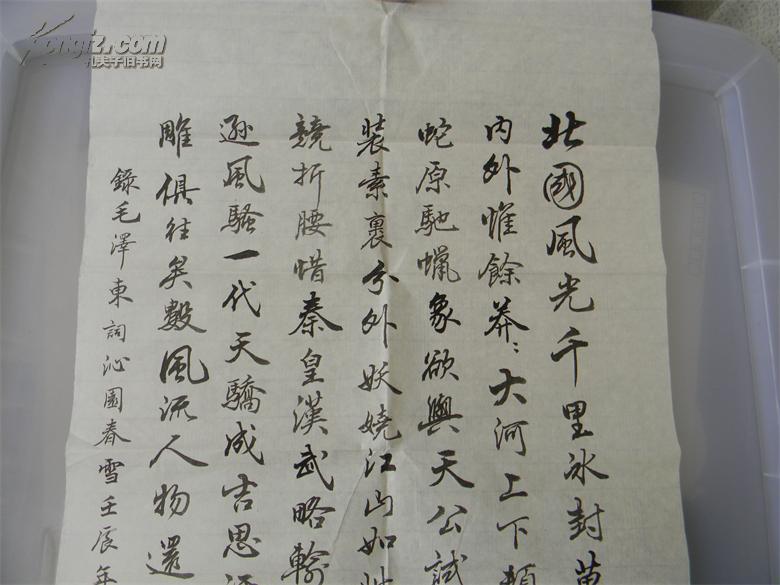 北國風光千里冰封萬
內外惟餘莽〻大河上下頓
蛇原馳蠟象欲與天公試
裝素裹分外妖嬈江山如此
競折腰惜秦皇漢武略輸
遜風騷一代天驕成吉思汗
雕俱往矣數風流人物還
錄毛澤東詞沁園春雪壬辰年
Kongfz.com
孔夫子旧书网